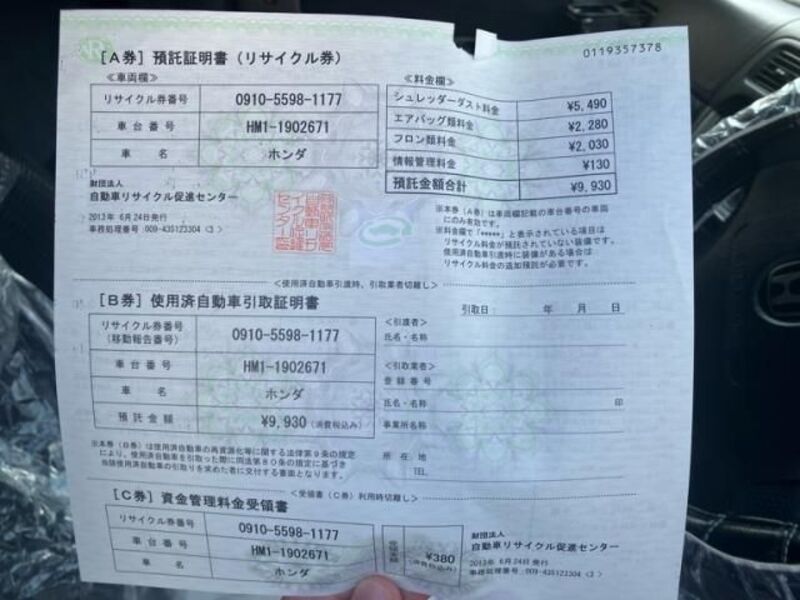 0119357378
[A券] 預託証明書(リサイクル券)
≪車両欄≫
リサイクル券番号 0910-5598-1177
車台番号 HM1-1902671
車名 ホンダ
≪料金欄≫
シュレッダーダスト料金 ¥5,490
エアバッグ類料金 ¥2,280
フロン類料金 ¥2,030
情報管理料金 ¥130
預託金額合計 ¥9,930
財団法人
自動車リサイクル促進センター
2013年 6月24日発行
事務処理番号:009-435123304〈3〉
※本券(A券)は車両欄記載の車台番号の車両
にのみ有効です。
※料金欄で「*****」と表示されている項目は
リサイクル料金が預託されていない装備です。
使用済自動車引渡時に装備がある場合は
リサイクル料金の追加預託が必要です。
<使用済自動車引渡時、引取業者切離し>
[B券] 使用済自動車引取証明書
引取日: 年 月 日
リサイクル券番号
(移動報告番号) 0910-5598-1177
車台番号 HM1-1902671
車名 ホンダ
預託金額 ¥9,930 (消費税込み)
<引渡者>
氏名・名称
<引取業者>
登録番号
氏名・名称 印
事業所名称
所在地
TEL
※本券(B券)は使用済自動車の再資源化等に関する法律第9条の規定
により、使用済自動車を引取った際に同法第80条の規定に基づき
当該使用済自動車の引取りを求めた者に交付する書面となります。
<受領書(C券)利用時切離し>
[C券] 資金管理料金受領書
リサイクル券番号 0910-5598-1177
車台番号 HM1-1902671
車名 ホンダ
¥380
(消費税込み)
財団法人
自動車リサイクル促進センター
2013年 6月24日発行
事務処理番号:009-435123304〈3〉